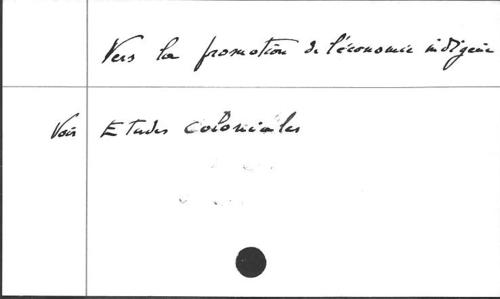 Vers la promotion de l'économie indigène
Voir Etudes coloniales